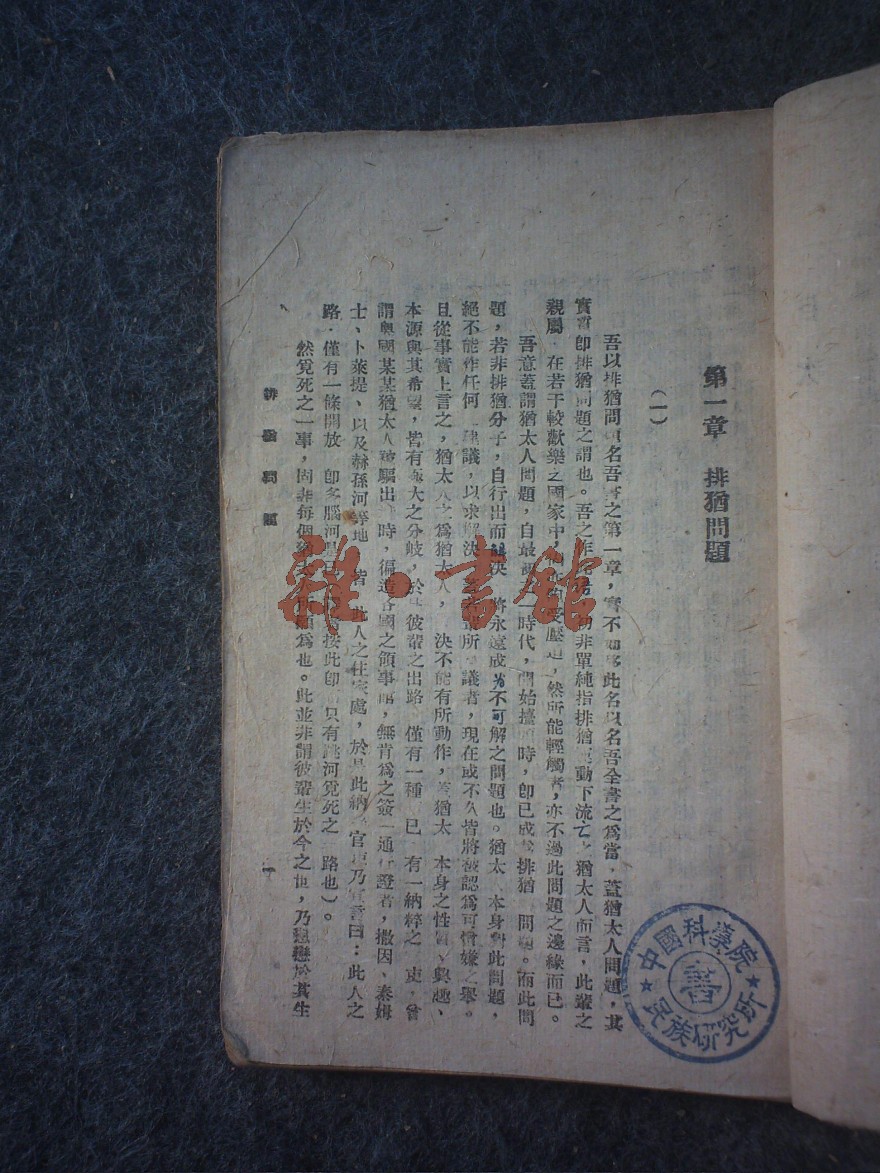 第一章 排猶問題
(一)
吾以排猶問題名吾書之第一章,實不如以此名以名吾全書之為當,蓋猶太人問題,其
實質即排猶問題之謂也。吾之作此語,非單純指排猶運動下流亡之猶太人而言,此輩之
親屬,在若干較歡樂之國家中,受壓迫,然所能輕觸者,亦不過此問題之邊緣而已。
吾意蓋謂猶太人問題,自最一時代,開始擡時,即已成為排猶問題。而此問
題,若非排猶分子,自行出而解決,將永遠成為不可解之問題也。猶太本身對此問題,
絕不能作任何建議,以求解決,所議者,現在或不久皆將被認為可憎嫌之舉。
且從事實上言之,猶太人之為猶太人,決不能有所動作,蓋猶太本身之性質興趣、
本源與其希望,皆有極大之分岐,於彼輩之出路,僅有一種已有一納粹之吏,曾
謂奧國某某猶太人被驅出時,徧造各國之領事館,無肯為之簽一通行證者,撒因、泰姆
士、卜萊提、以及赫孫河等地,皆此人之住處,於是此納官乃宣言曰:此人之
路,僅有一條開放,即多腦河是按此即只有跳河覓死之一路也)。
然覓死之一事,固非每個猶太人所願為也。此並非謂彼輩生於今之世,乃戀戀於其生
排猶問題
一
雜·書館
中國科學院
民族研究所
書